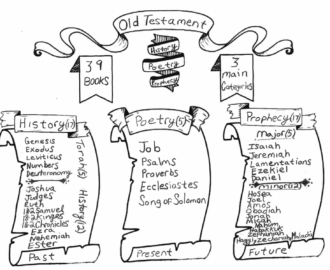 Old Testament
39
Books
History
Poetry
Prophecy
3
main
Categories
History(17)
Genesis
Exodus
Leviticus
Numbers
Deuteronomy
Torah(5)
Joshua
Judges
Ruth
1&2Samuel
1&2Kings
1&2Chronicles
Ezra
Nehemiah
Ester
History(12)
Past
Poetry(5)
Job
Psalms
Proverbs
Ecclesiastes
Song of Solomon
Present
Prophecy(17)
major(5)
Isaiah
Jeremiah
Lamentations
Ezekiel
Daniel
minor(12)
Hosea
Joel
Amos
Obadiah
Jonah
Micah
Nahum
Habakkuk
Zephaniah
Haggai, Zechariah, Malachi
Future